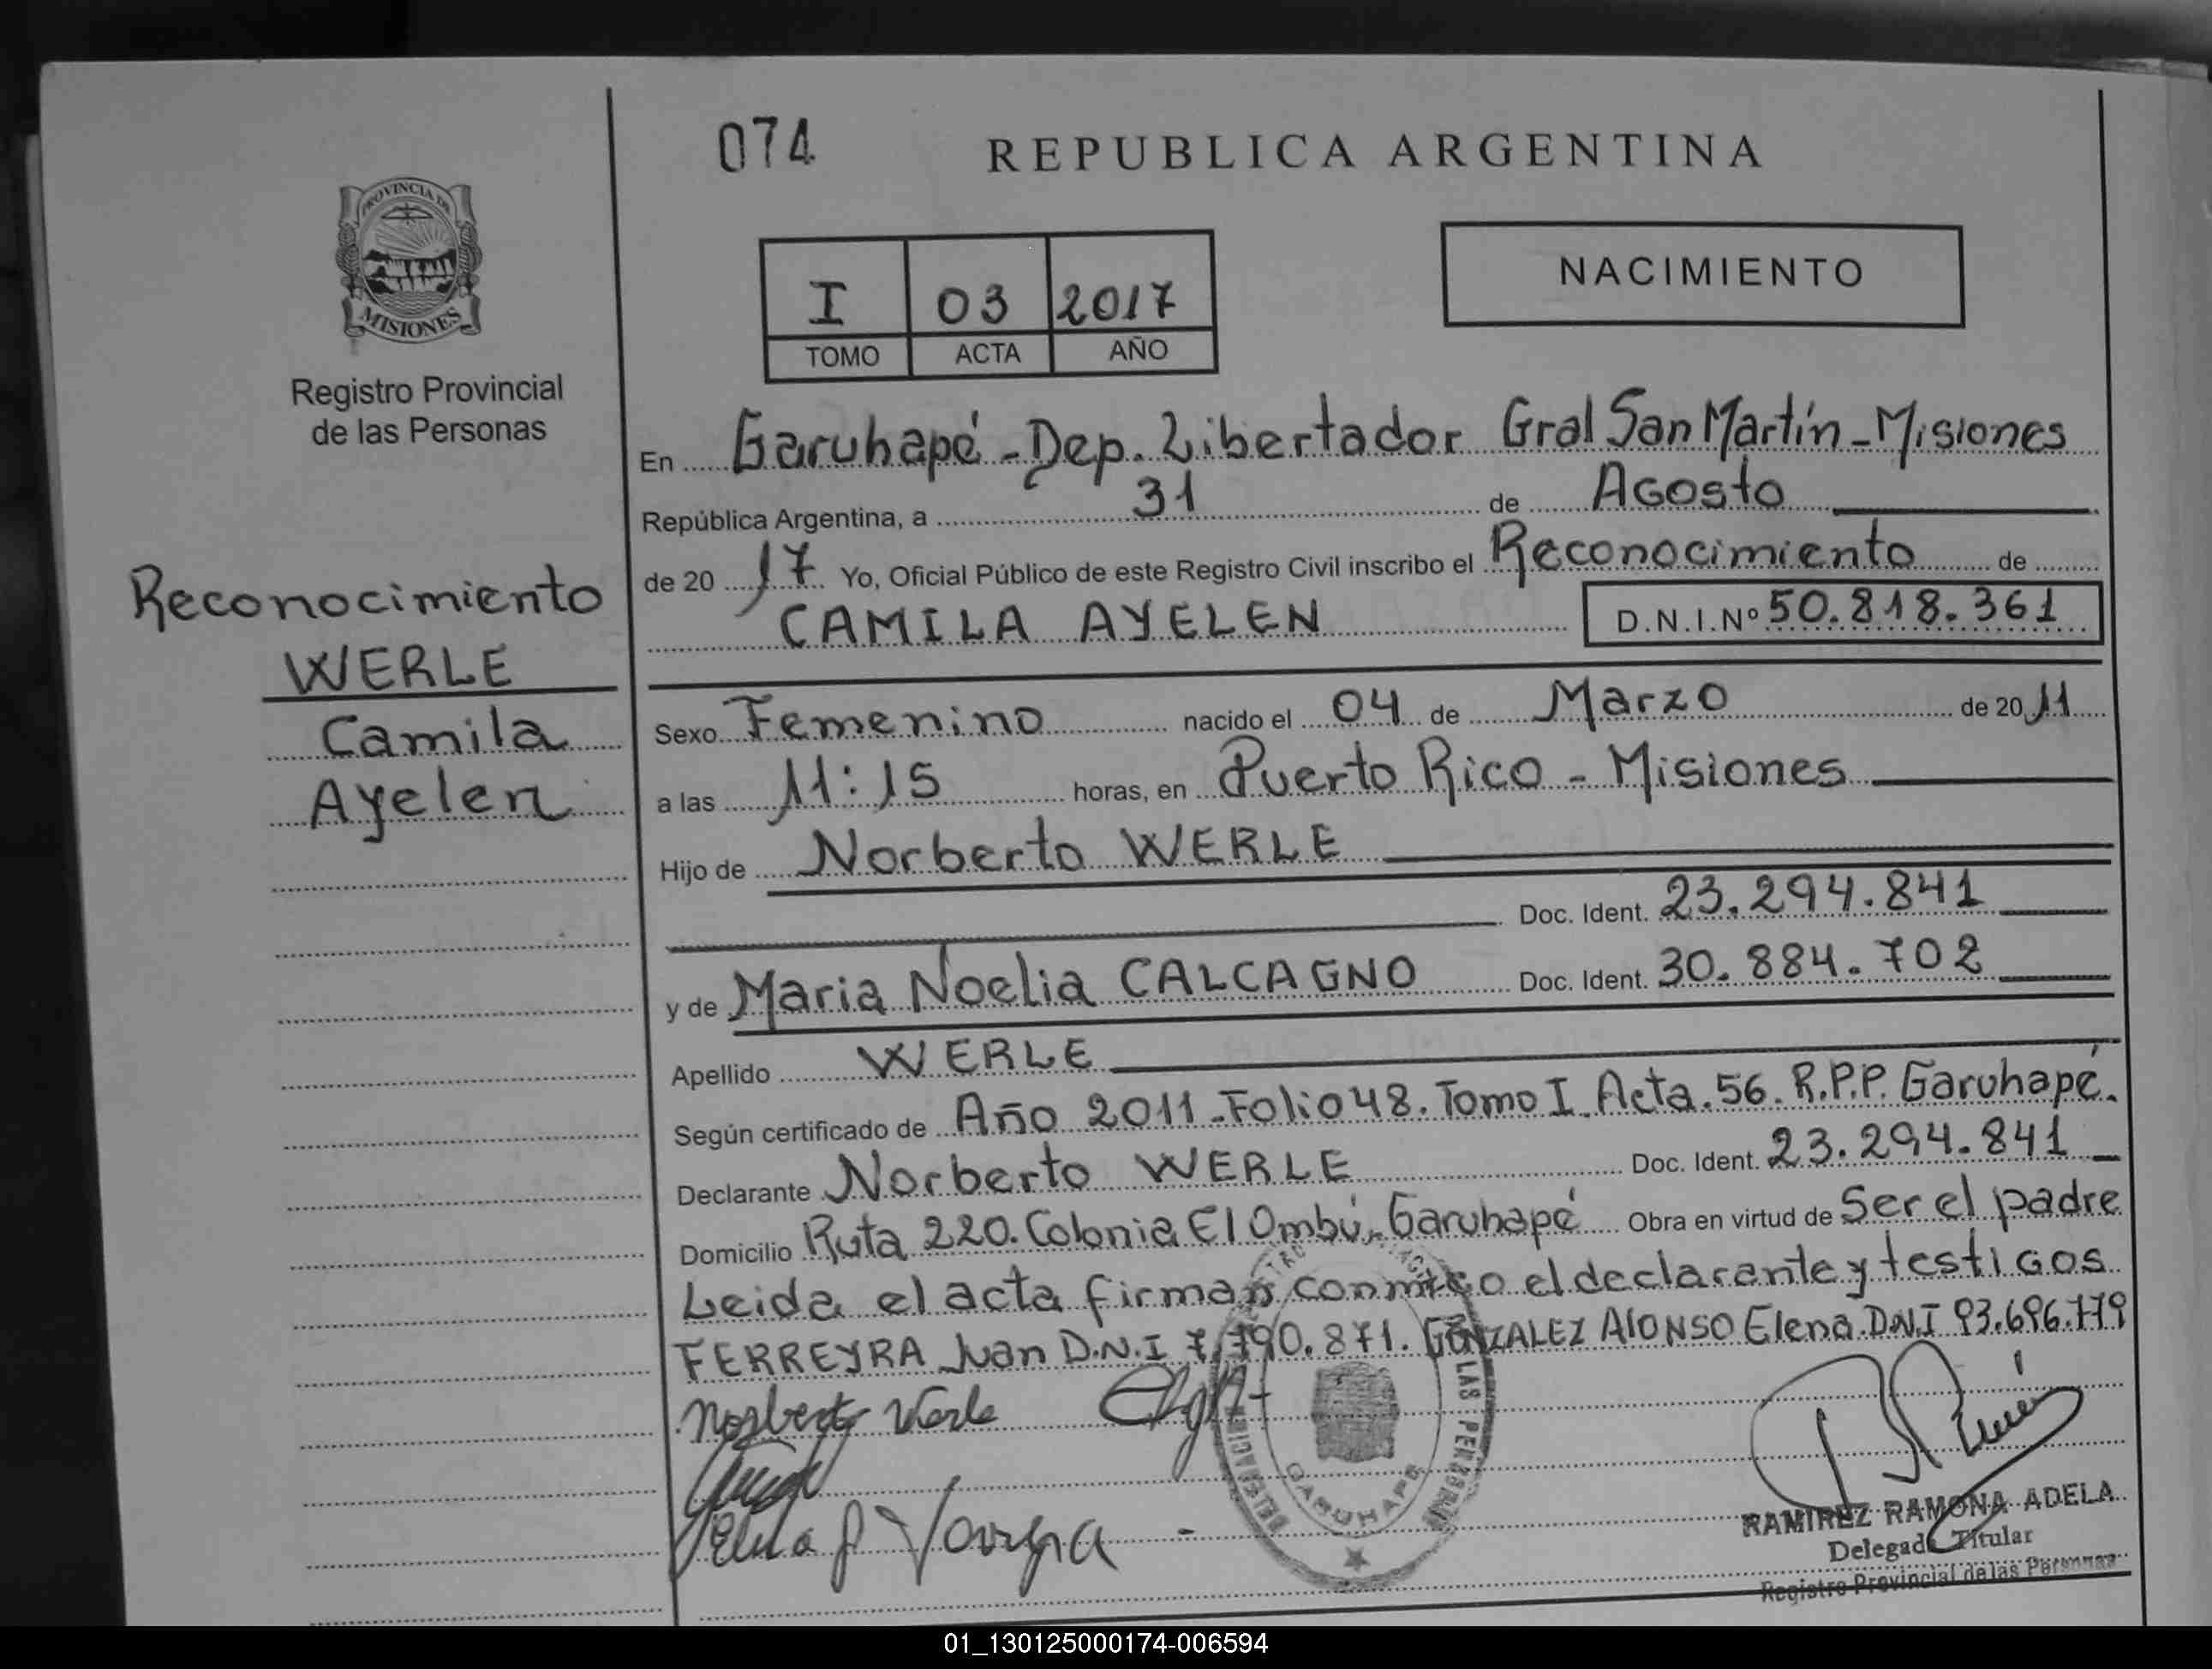 074
REPUBLICA ARGENTINA
PROVINCIA DE
MISIONES
Registro Provincial
de las Personas
I 03 2017
TOMO ACTA AÑO
NACIMIENTO
Reconocimiento
WERLE
Camila
Ayelen
En Garuhapé - Dep. Libertador Gral San Martín - Misiones
República Argentina, a 31 de Agosto
de 20 17 Yo, Oficial Público de este Registro Civil inscribo el Reconocimiento de
CAMILA AYELEN D.N.I.Nº 50.818.361
Sexo Femenino nacido el 04 de Marzo de 20 11
a las 11:15 horas, en Puerto Rico - Misiones
Hijo de Norberto WERLE
Doc. Ident. 23.294.841
y de Maria Noelia CALCAGNO Doc. Ident. 30.884.702
Apellido WERLE
Según certificado de Año 2011 - Folio 48. Tomo I. Acta. 56. R.P.P. Garuhapé.
Declarante Norberto WERLE Doc. Ident. 23.294.841
Domicilio Ruta 220. Colonia El Ombú - Garuhapé Obra en virtud de Ser el padre
Leida el acta firman conmigo el declarante y testigos
FERREYRA Juan D.N.I 7.790.871. GONZALEZ AlONSO Elena. D.N.I 93.696.779
Norberto Werle
LAS PERSONAS
GARUHAPE
RAMIREZ RAMONA ADELA
Delegada Titular
Registro Provincial de las Personas
01_130125000174-006594